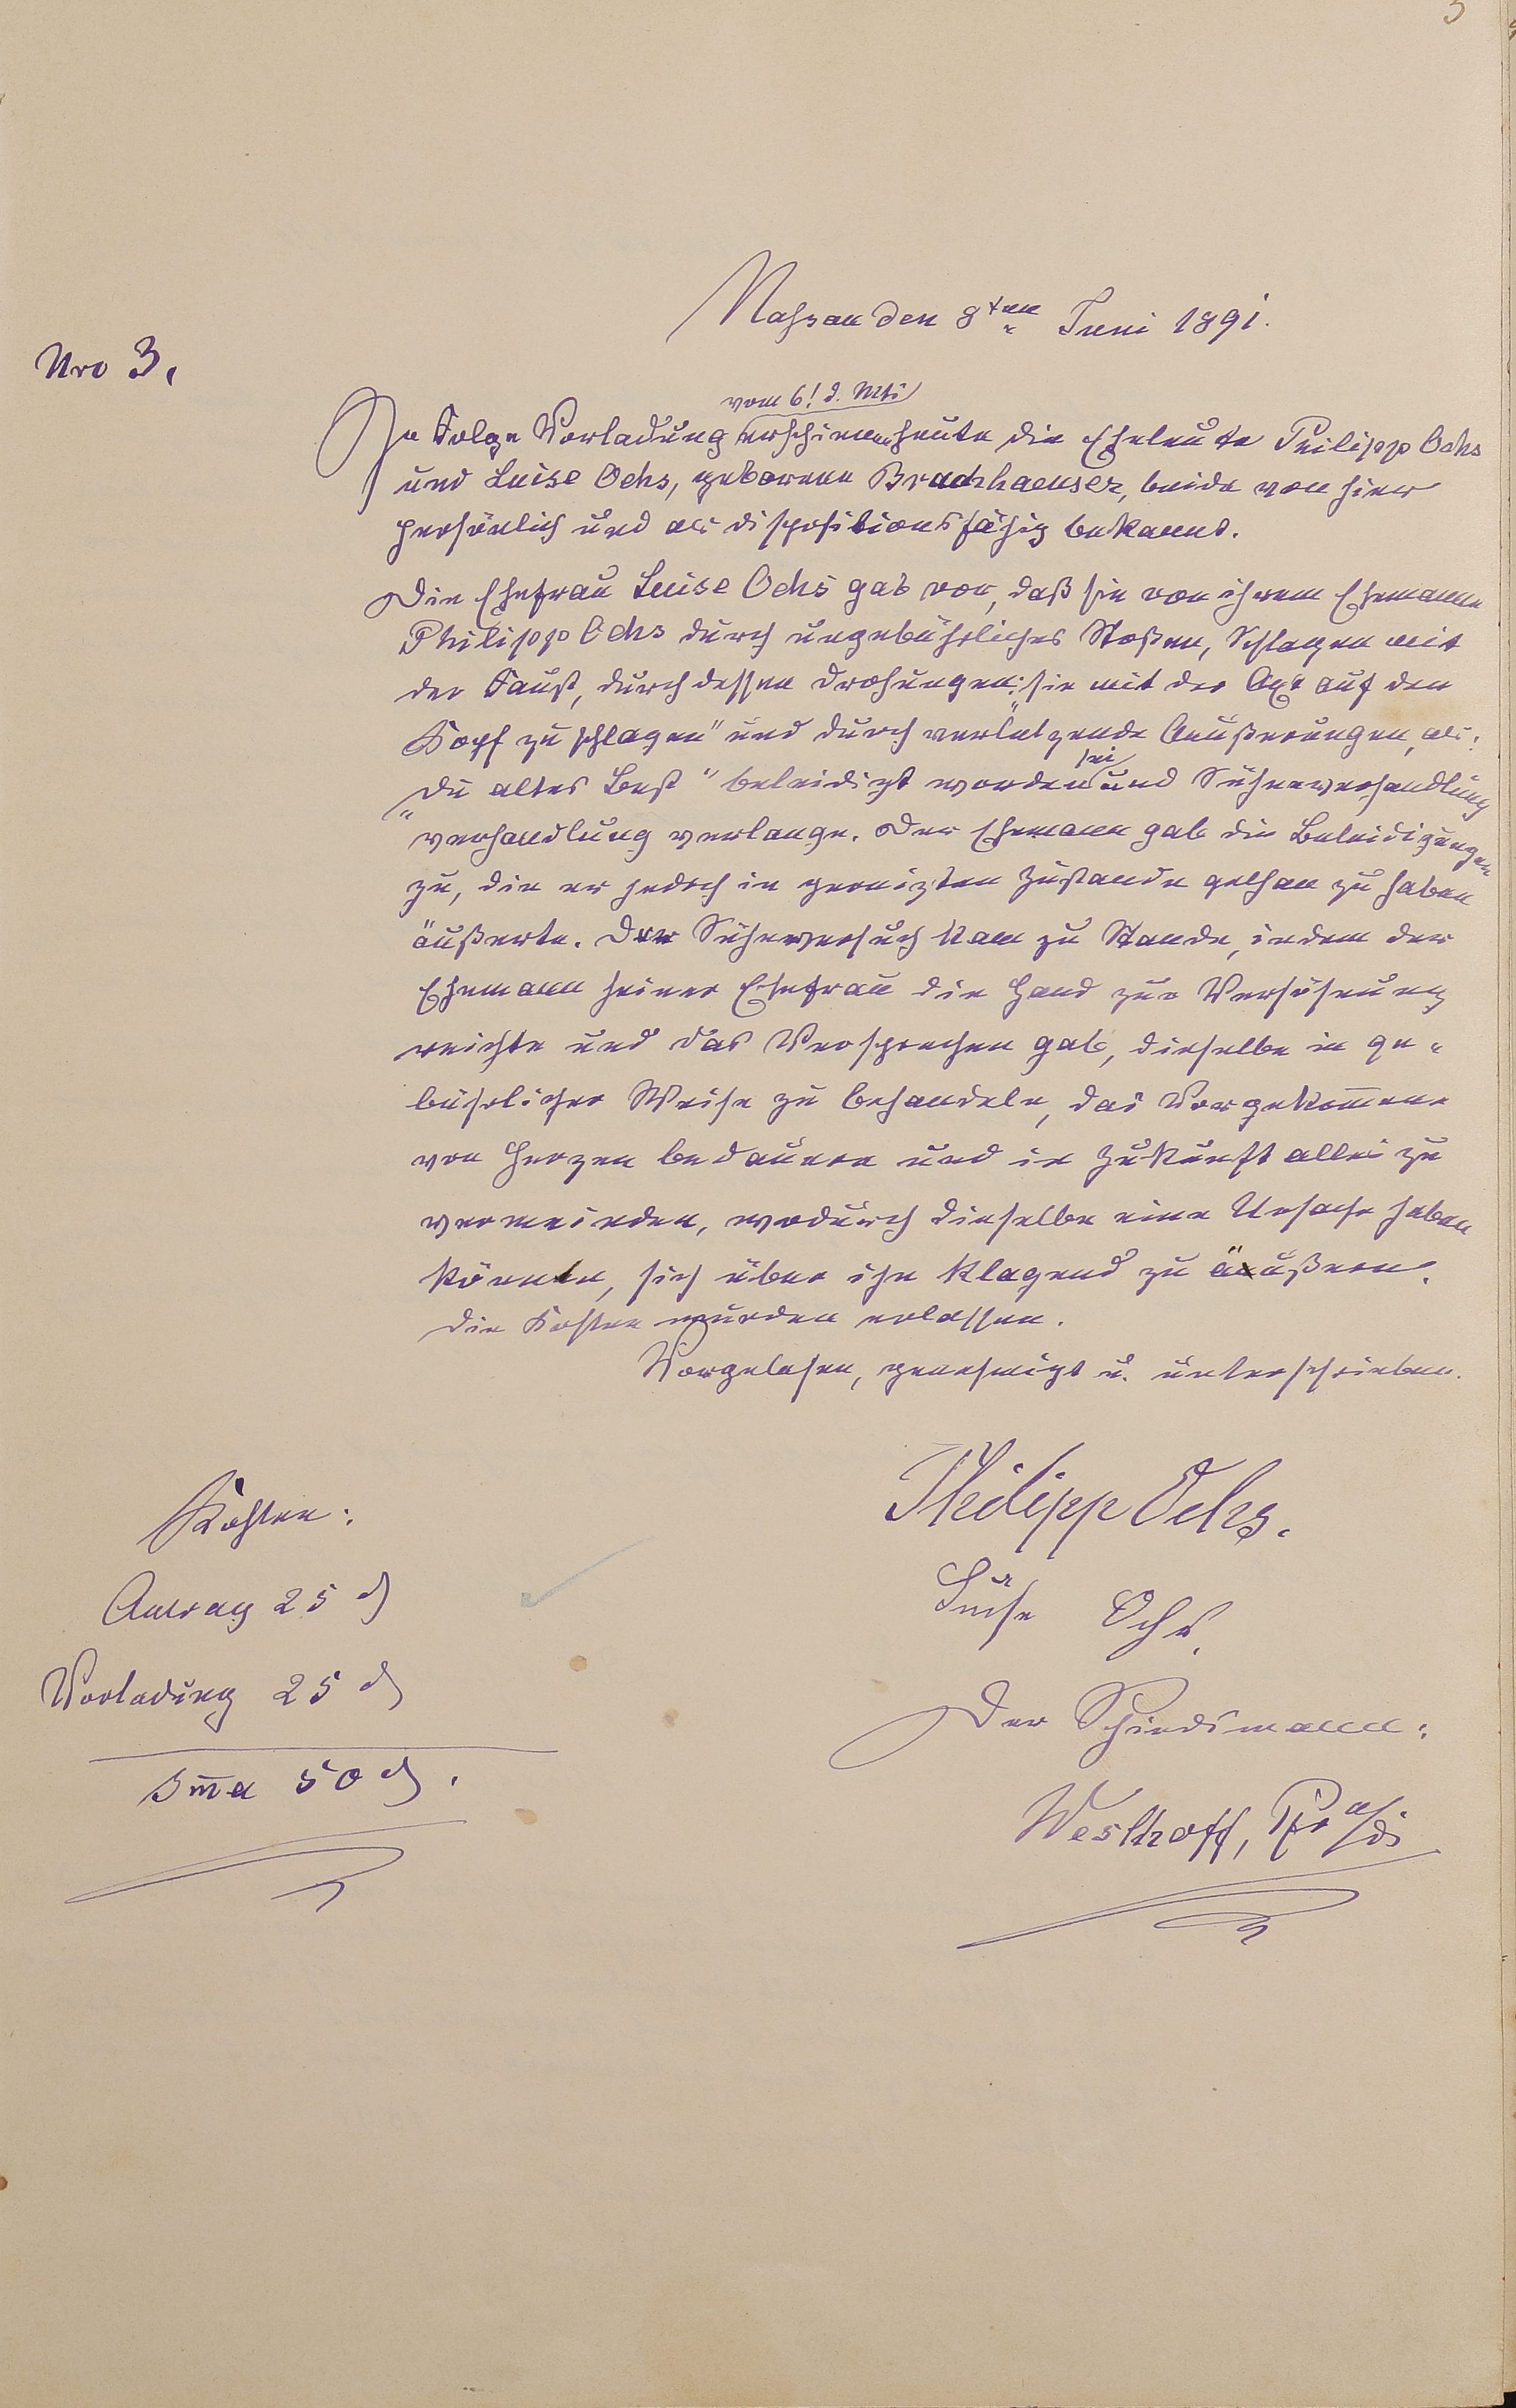 3
Nassau den 8ten Juni 1891.
Nro 3.
vom 6! d. Mts
In Folge Vorladung erschienen heute die Eheleute Philipp Ochs
und Luise Ochs, geborene Bruchhaeuser, beide von hier
persönlich und als dispositionsfähig bekannt.
Die Ehefrau Luise Ochs gab vor, daß sie von ihrem Ehemanne
Philipp Ochs durch ungebührliches Stoßen, Schlagen mit
der Faust, durch dessen Drohungen: „sie mit der Axt auf den
Kopf zu schlagen" und durch verletzende Aeußerungen, als:
„Du altes Best" beleidigt worden sei und Sühneverhandlung
verhandlung verlange. Der Ehemann gab die Beleidigungen
zu, die er jedoch in gereizten Zustande gethan zu haben
äußerte. Der Sühneversuch kam zu Stande, indem der
Ehemann seiner Ehefrau die Hand zur Versöhnung
reichte und das Versprechen gab, dieselbe in ge-
bührlicher Weise zu behandeln, das Vorgekom̅ene
von Herzen bedauere und in Zukunft alles zu
vermeinden, wodurch dieselbe eine Ursache haben
könnte, sich über ihn klagend zu äußern.
Die Kosten wurden erlassen.
Vorgelesen, genehmigt u. unterschrieben.
Philipp Ochs.
Luise Ochs.
Der Schiedsmann:
Westhoff,
Kosten:
Antrag 25 ₰
Vorladung 25 ₰
Sm̅a 50 ₰.